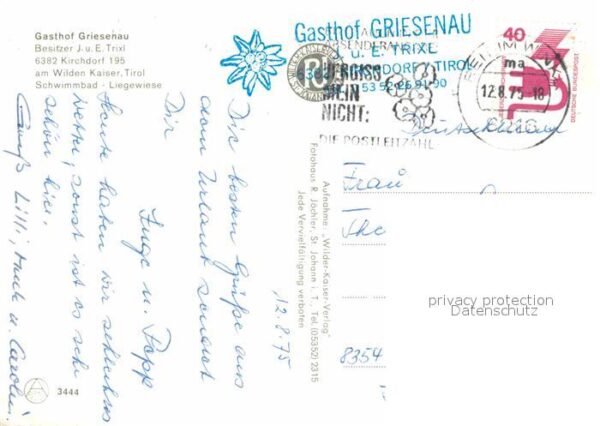 Gasthof Griesenau
Besitzer J. u. E. Trixl
6382 Kirchdorf 195
am Wilden Kaiser, Tirol
Schwimmbad - Liegewiese
Gasthof GRIESENAU
J. u. E. TRIXL
VERGISS
MEIN
NICHT:
DIE POSTLEITZAHL
40
12.8.75-18
ma
Deutschland
Frau
8354
privacy protection
Datenschutz
12.8.75
Die besten Grüße aus
dem Urlaub sendet
Dir
Inge u. Popp
Heute haben wir schlechtes
Wetter, sonst ist es sehr
schön hier.
Gruß Lilli,
Aufnahme: „Wilder-Kaiser-Verlag"
Fotohaus R. Jöchler, St. Johann i. T., Tel. (05352) 2315
Jede Vervielfältigung verboten
3444